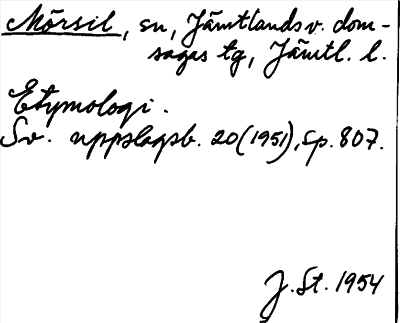 Mörsil, sn, Jämtlands v. dom-
sagas tg, Jämtl. l.
Etymologi.
Sv. uppslagsb. 20(1951), sp. 807.
J. St. 1954